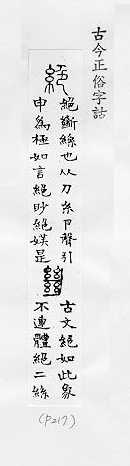 古今正俗字詁
絕
絕斷絲也从刀糸卩聲引
申為極如言絕眇絕媄是
𢇍
古文絕如此象
不連體絕二絲
(P217)